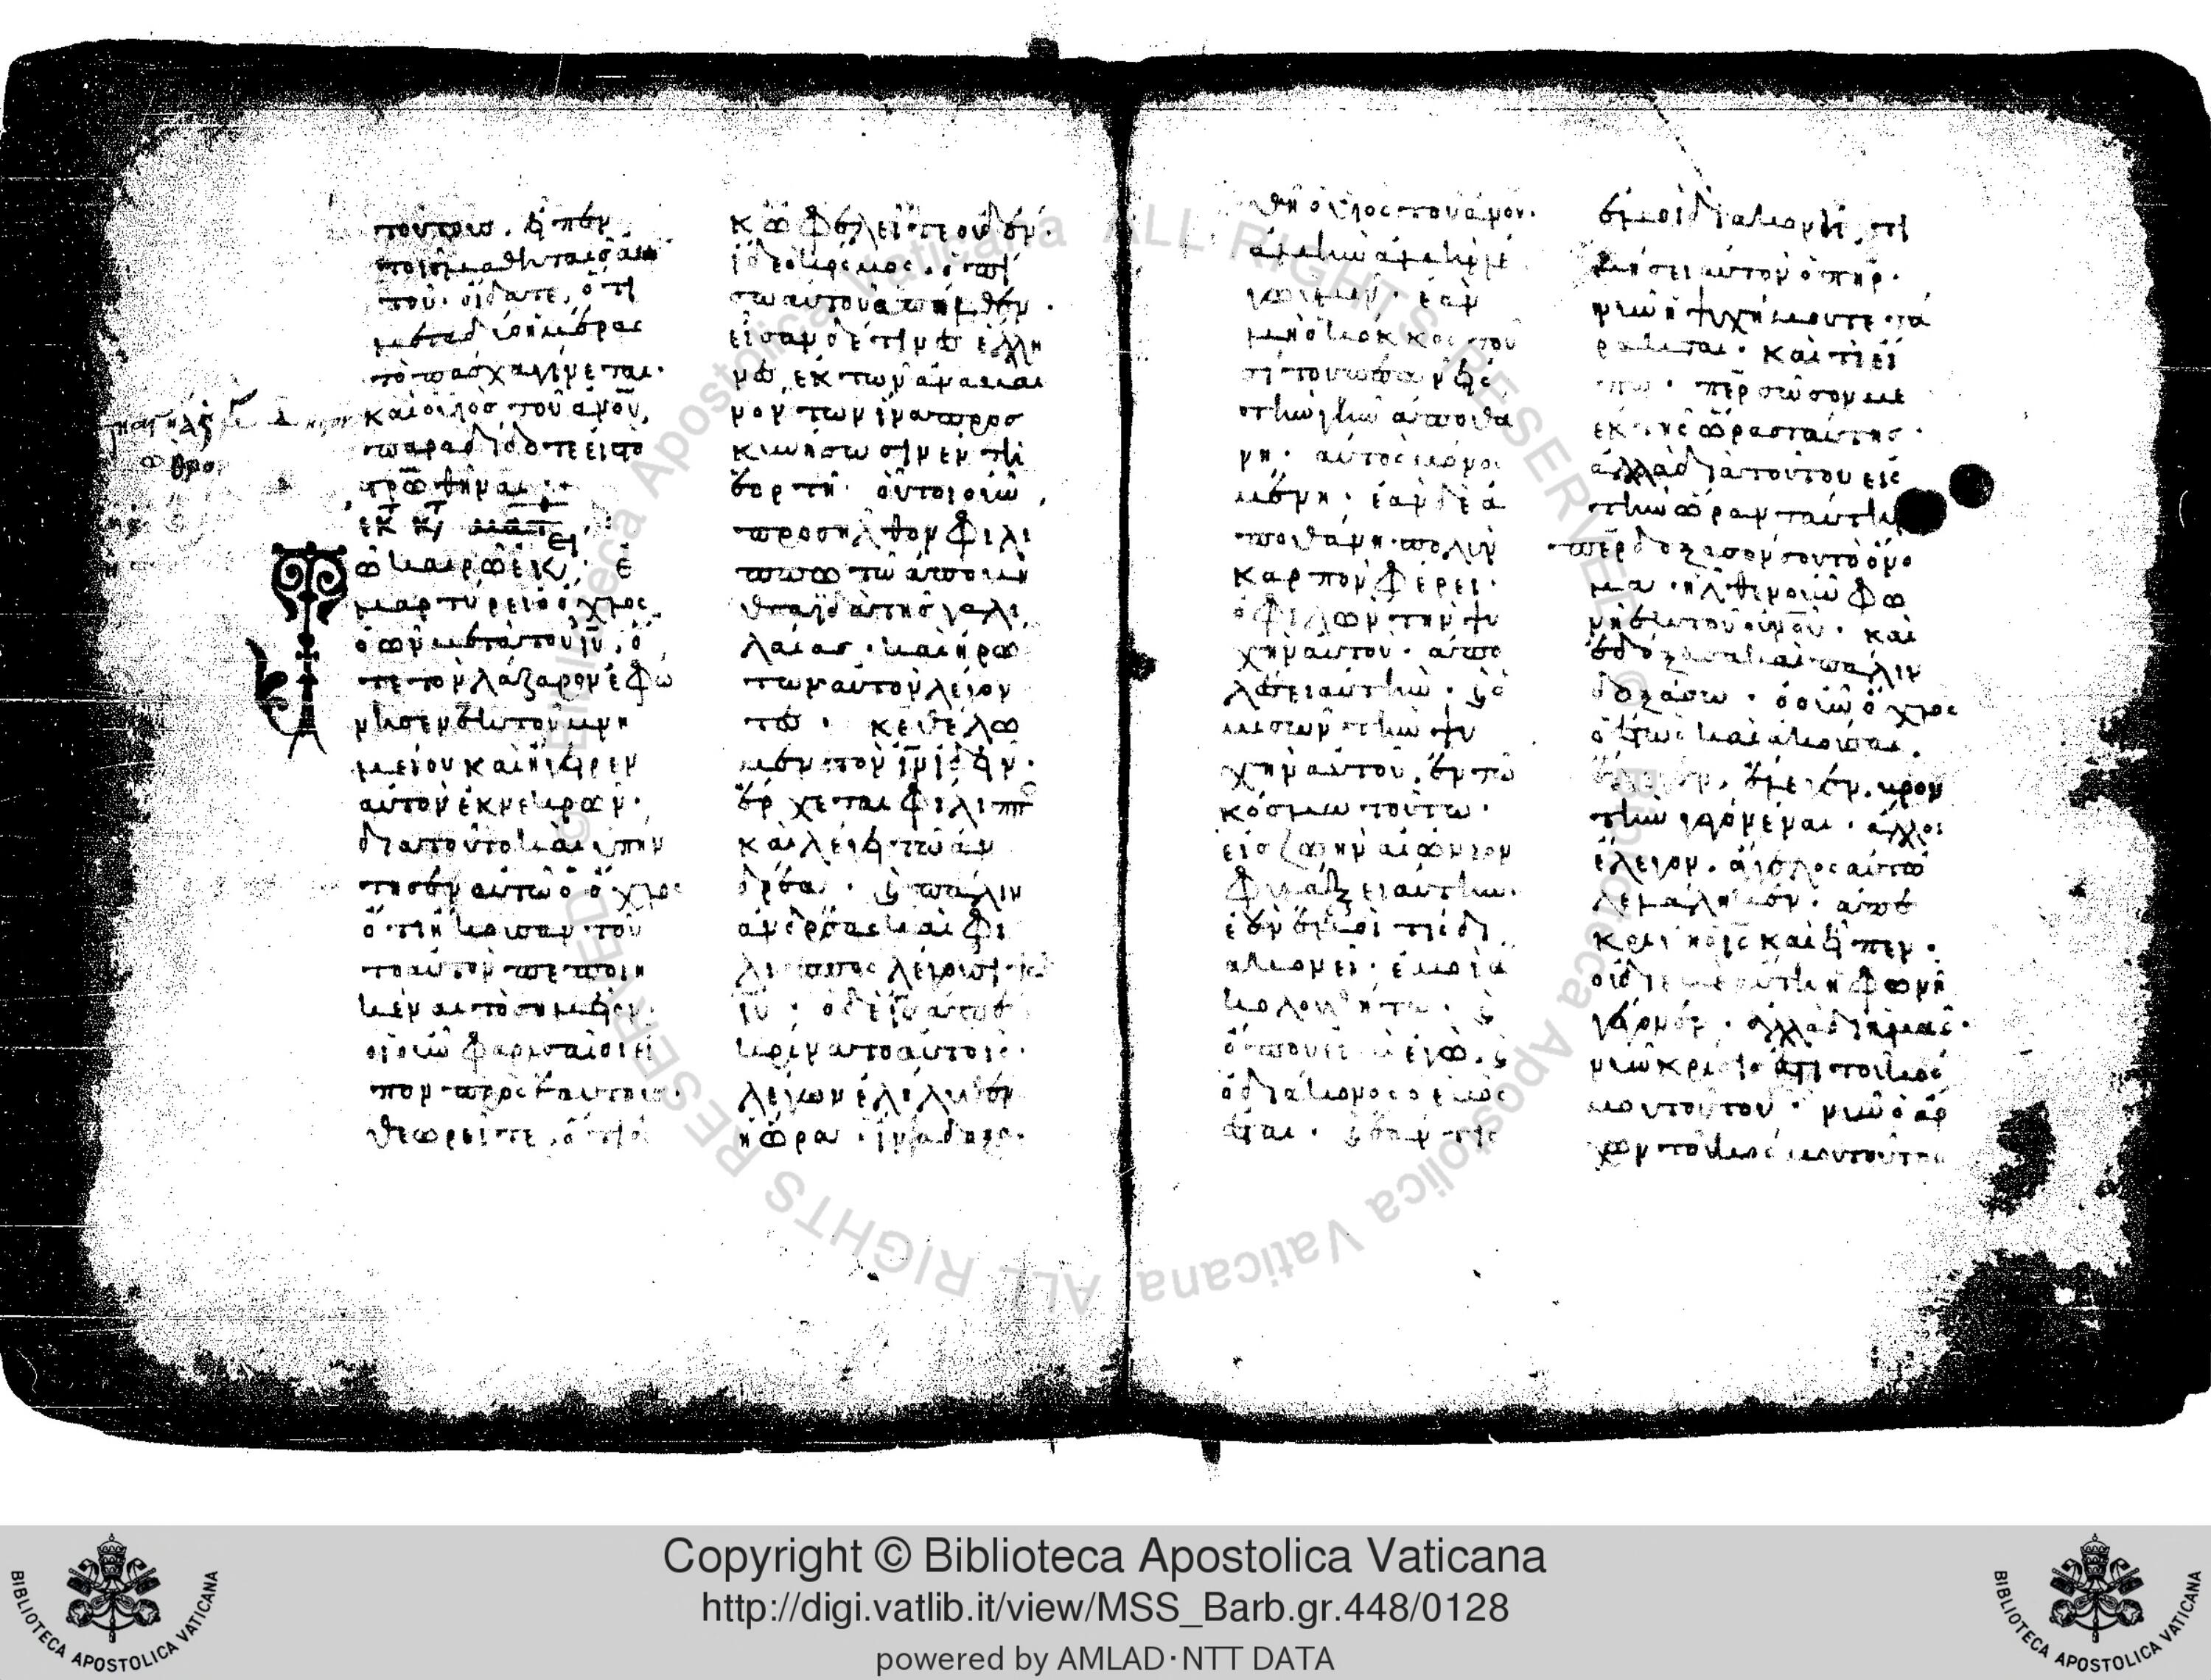 τούτους. εἶπεν
τοῖς μαθηταῖς αὐ
τοῦ. οἴδατε, ὅτι
μετὰ δύο ἡμέρας
τὸ πάσχα γίνεται.
καὶ ὁ υἱὸς τοῦ ἀνου,
παραδίδοται εἰς τὸ
μαρτυρεῖ ὁ ὄχλος
ὁ ὢν μετὰ τοῦ ιυ, ὅ
τε τὸν λάζαρον ἐφώ
νησεν ἐκ τοῦ μνη
μείου καὶ ἤγειρεν
αὐτὸν ἐκ νεκρῶν.
διατοῦτο καὶ ὑπήν
τησεν αὐτῶ ὁ ὄχλος
ὅτι ἤκουσαν τοῦ
το αὐτὸν πεποιη
κέναι τὸ σημεῖον.
οἱ οὖν φαρισαῖοι εἶ
πον πρὸς ἑαυτούς.
θεωρεῖτε, ὅτι οὐ
κ ὠφελεῖτε οὐδέν.
ἴδε ὁ κόσμος ὀπί
σω αὐτοῦ ἀπῆλθεν.
εἶσαν δέ τινες ἑλλη
νες, ἐκ τῶν ἀναβαι
νόντων ἵνα προς
κυνήσωσιν ἐν τῆ
ἑορτῆ. οὗτοι οὖν,
προσῆλθον φιλί
ππω τῶ ἀπὸ βη
θσαϊδὰ τῆς γαλι
λαίας. καὶ ἠρώ
των αὐτὸν λέγον
τες. κε θέλο
μεν τὸν ιν ἰδεῖν.
ἔρχεται φίλιππος
καὶ λέγει τῶ ἀν
δρέα. καὶ πάλιν
ἀνδρέας καὶ φί
λιππος λέγουσι τῶ
ιυ. ὁ δὲ ις ἀπε
κρίνατο αὐτοῖς.
λέγων ἐλήλυθεν
ἡ ὥρα. ἵνα δοξα
θῆ ὁ υἱὸς τοῦ ἀνου.
ἀμὴν ἀμὴν λέ
γω ὑμῖν. ἐὰν
μὴ ὁ κόκκος τοῦ
σίτου πεσὼν εἰς
τὴν γῆν ἀποθά
νη. αὐτὸς μόνος
μένει. ἐὰν δὲ ἀ
ποθάνη. πολὺν
καρπὸν φέρει.
ὁ φιλῶν τὴν ψυ
χὴν αὐτοῦ. ἀπο
λέσει αὐτήν. καὶ ὁ
μισῶν τὴν ψυ
χὴν αὐτοῦ, ἐν τῶ
κόσμω τούτω.
εἰς ζωὴν αἰώνιον
φυλάξει αὐτήν.
ἐὰν ἐμοί τις δι
ακονεῖ. ἐμοὶ ἀ
κολουθήτω. καὶ
ὅπου εἰμὶ ἐγώ. καὶ
ὁ διάκονος ὁ ἐμὸς
ἔσται. καὶ ἐάν τις
ἐμοὶ διακονῆ, τι
μήσει αὐτὸν ὁ πηρ.
νῦν ἡ ψυχή μου τετά
ρακται. καὶ τί εἴ
πω. περ σῶσον με
ἐκ τῆς ὥρας ταύτης.
ἀλλὰ διὰ τοῦτο εἰς
τὴν ὥραν ταύτην
περ δόξασόν σου τὸ ὄνο
μα. ἦλθεν οὖν φω
νὴ ἐκ τοῦ οὐνου. καὶ
ἐδόξασα καὶ πάλιν
δοξάσω. ὁ οὖν ὄχλος
ὁ ἑστὼς καὶ ἀκούσας.
ἔλεγεν, ἔλεγεν, βρον
τὴν γεγονέναι. ἄλλοι
ἔλεγον. ἄγγελος αὐτῶ
λελάληκεν. ἀπε
κρίθη ὁ ις καὶ εἶπεν.
οὐ δι ἐμὲ αὕτη ἡ φωνὴ
γέγονεν. ἀλλὰ δι ἡμᾶς.
νῦν κρίσις ἐστὶ τοῦ κόσ
μου τούτου. νῦν ὁ ἄρ
χων τοῦ κόσμου τούτου
Copyright © Biblioteca Apostolica Vaticana
http://digi.vatlib.it/view/MSS_Barb.gr.448/0128
powered by AMLAD·NTT DATA
BIBLIOTECA APOSTOLICA VATICANA
BIBLIOTECA APOSTOLICA VATICANA